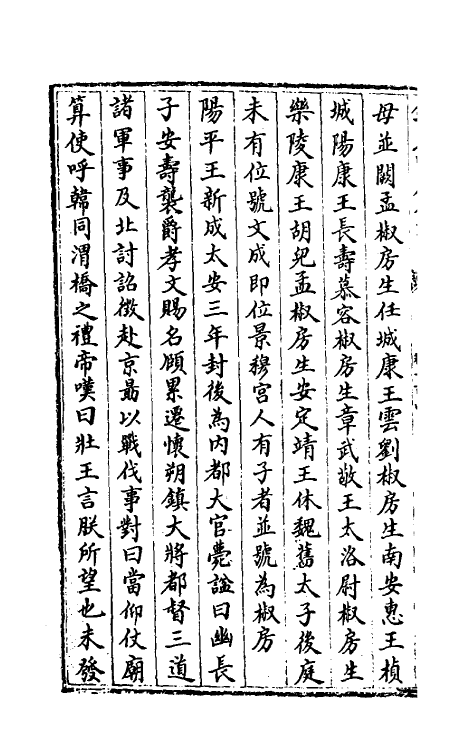 母並闕孟椒房生任城康王雲劉椒房生南安惠王楨
城陽康王長壽慕容椒房生章武敬王太洛尉椒房生
樂陵康王胡兒孟椒房生安定靖王休魏舊太子後庭
未有位號文成即位景穆宮人有子者並號為椒房
陽平王新成太安三年封後為內都大官薨諡曰幽長
子安壽襲爵孝文賜名頤累遷懷朔鎮大將都督三道
諸軍事及北討詔徵赴京勗以戰伐事對曰當仰仗廟
算使呼韓同渭橋之禮帝嘆曰壯王言朕所望也未發